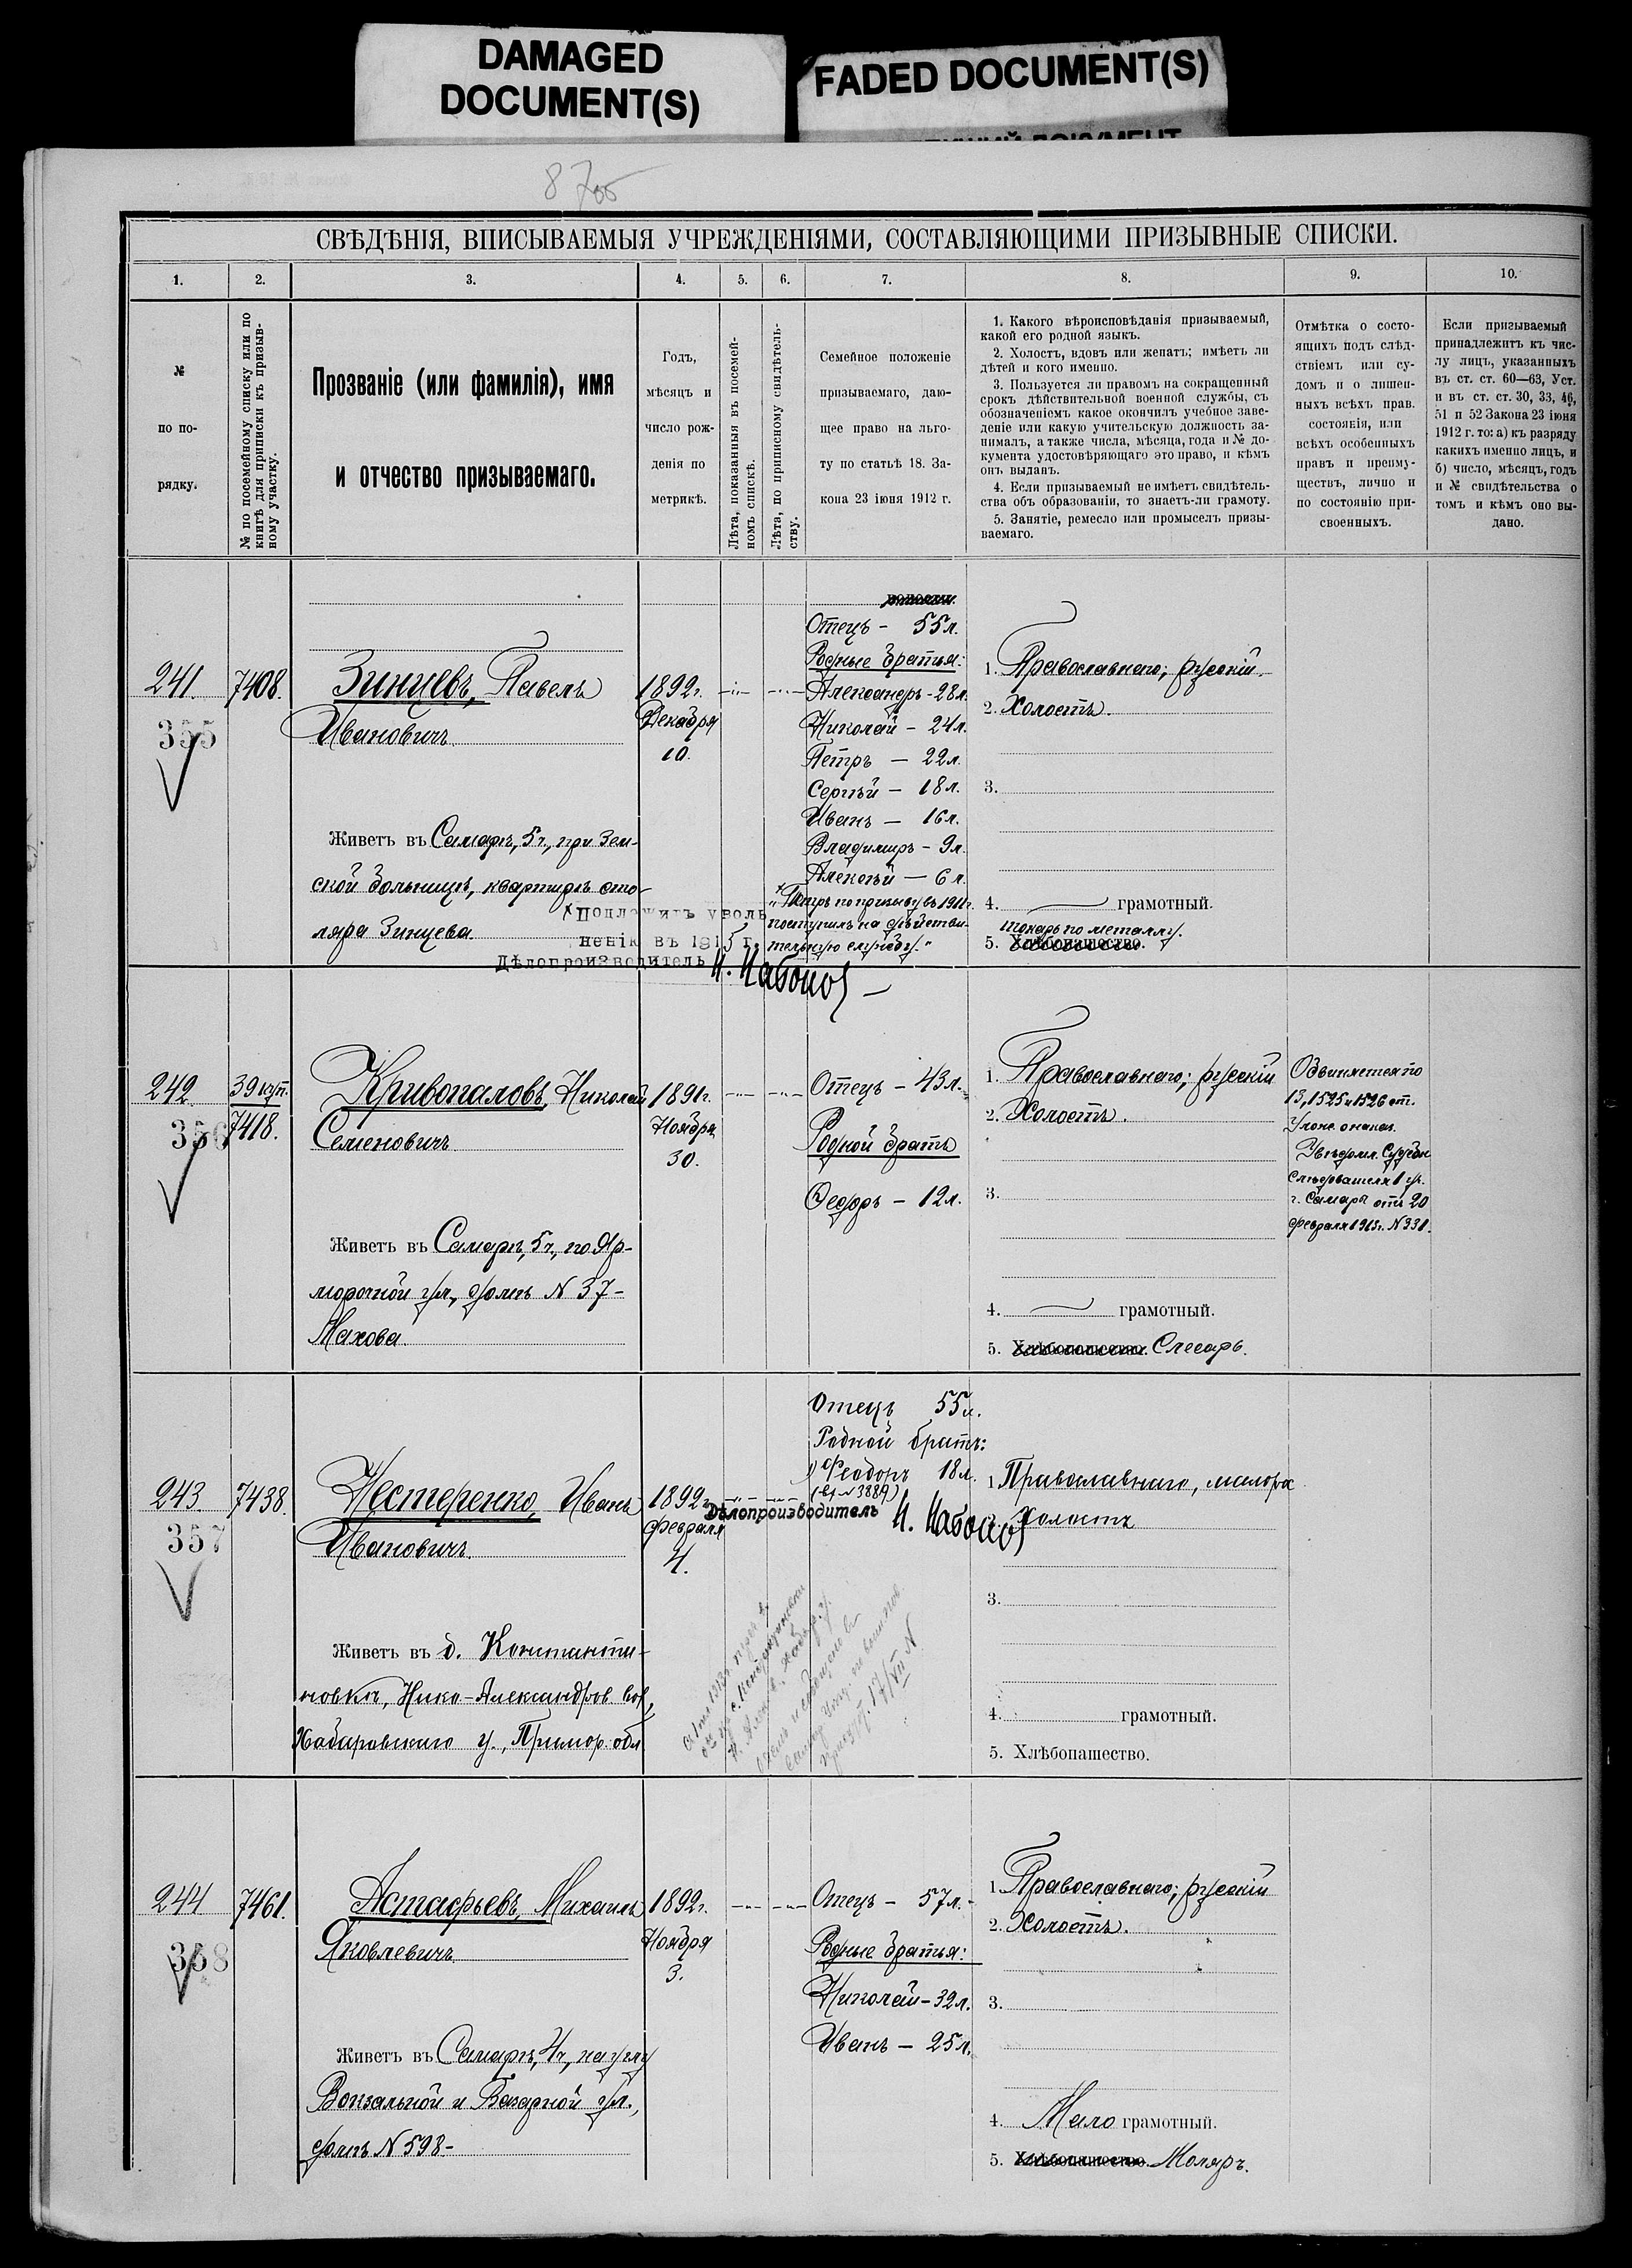 DAMAGED
DOCUMENT(S)
FADED DOCUMENT(S)
СВѢДѢНІЯ, ВПИСЫВАЕМЫЯ УЧРЕЖДЕНІЯМИ, СОСТАВЛЯЮЩИМИ ПРИЗЫВНЫЕ СПИСКИ.
1.
2.
3.
4.
5.
6.
7.
8.
9.
10.
№
по по-
рядку.
№ по посемейному списку или по
книгѣ для приписки къ призыв-
ному участку.
Прозваніе (или фамилія), имя
и отчество призываемаго.
Годъ,
мѣсяцъ и
число рож-
денія по
метрикѣ.
Лѣта, показанныя въ посемей-
номъ спискѣ.
Лѣта, по приписному свидѣтель-
ству.
Семейное положеніе
призываемаго, даю-
щее право на льго-
ту по статьѣ 18. За-
кона 23 іюня 1912 г.
1. Какого вѣроисповѣданія призываемый,
какой его родной языкъ.
2. Холостъ, вдовъ или женатъ; имѣетъ ли
дѣтей и кого именно.
3. Пользуется ли правомъ на сокращенный
срокъ дѣйствительной военной службы, съ
обозначеніемъ какое окончилъ учебное заве-
деніе или какую учительскую должность за-
нималъ, а также числа, мѣсяца, года и № до-
кумента удостовѣряющаго это право, и кѣмъ
онъ выданъ.
4. Если призываемый не имѣетъ свидѣтель-
ства объ образованіи, то знаетъ-ли грамоту.
5. Занятіе, ремесло или промыселъ призы-
ваемаго.
Отмѣтка о состо-
ящихъ подъ слѣд-
ствіемъ или су-
домъ и о лишен-
ныхъ всѣхъ прав.
состоянія, или
всѣхъ особенныхъ
правъ и преиму-
ществъ, лично и
по состоянію при-
своенныхъ.
Если призываемый
принадлежитъ къ чис-
лу лицъ, указанныхъ
въ ст. ст. 60—63, Уст.
и въ ст. ст. 30, 33, 46,
51 и 52 Закона 23 іюня
1912 г. то: а) къ разряду
какихъ именно лицъ, и
б) число, мѣсяцъ, годъ
и № свидѣтельства о
томъ и кѣмъ оно вы-
дано.
241
355
7408.
Зинцевъ, Павелъ
Ивановичъ
Живетъ въ Самарѣ, 5ч., при Зем-
ской больницѣ, квартирѣ сто-
ляра Зинцева.
1892г.
Декабря
10.
Отецъ - 55л.
Родные братья:
Александръ - 28л.
Николай - 24л.
Петръ — 22л.
Сергѣй — 18л.
Иванъ — 16л.
Владимиръ - 9л.
Алексѣй — 6л.
"Петръ по призыву въ 1911г.
поступилъ на дѣйстви-
тельную службу."
Подлежитъ уволь
ненію въ 1915 г.
Дѣлопроизводитель
1. Православнаго; русскій.
2. Холостъ.
3.
4. грамотный.
токарь по металлу.
5. Хлѣбопашество.
242
356
39 куп.
7418.
Кривопаловъ, Николай
Семеновичъ
Живетъ въ Самарѣ, 5ч., по Яр-
морочной ул., домъ N 37-
Махова
1891г.
Ноября
30.
Отецъ - 43л.
Родной братъ
Ѳедоръ - 12л.
1. Православнаго; русскій
2. Холостъ.
3.
4. грамотный.
5. Хлѣбопашество. Слесарь.
Обвиняется по
13, 1525 и 1526 ст.
Улож. о наказ.
Увѣдомл. Судебн
Слѣдователя 1 уч.
г. Самары отъ 20
февраля 1913г. N 331.
243
357
7438.
Нестеренко, Иванъ
Ивановичъ.
Живетъ въ д. Константи-
новкѣ, Нико-Александров вол,
Хабаровскаго у., Примор. обл
1892г.
февраля
4.
Отецъ 55л.
Родной братъ:
1) Ѳеодоръ 18л.
Дѣлопроизводитель
1. Православнаго, малорос
Холостъ
3.
4. грамотный.
5. Хлѣбопашество.
244
358
7461.
Астафьевъ, Михаилъ
Яковлевичъ
Живетъ въ Самарѣ, 4ч., на углу
Вокзальной и Базарной ул.,
домъ N 598-
1892г.
Ноября
3.
Отецъ - 57л.
Родные братья:
Николай - 32л.
Иванъ - 25л.
1. Православнаго; русскій
2. Холостъ.
3.
4. Мало грамотный.
5. Хлѣбопашество. Моляръ.